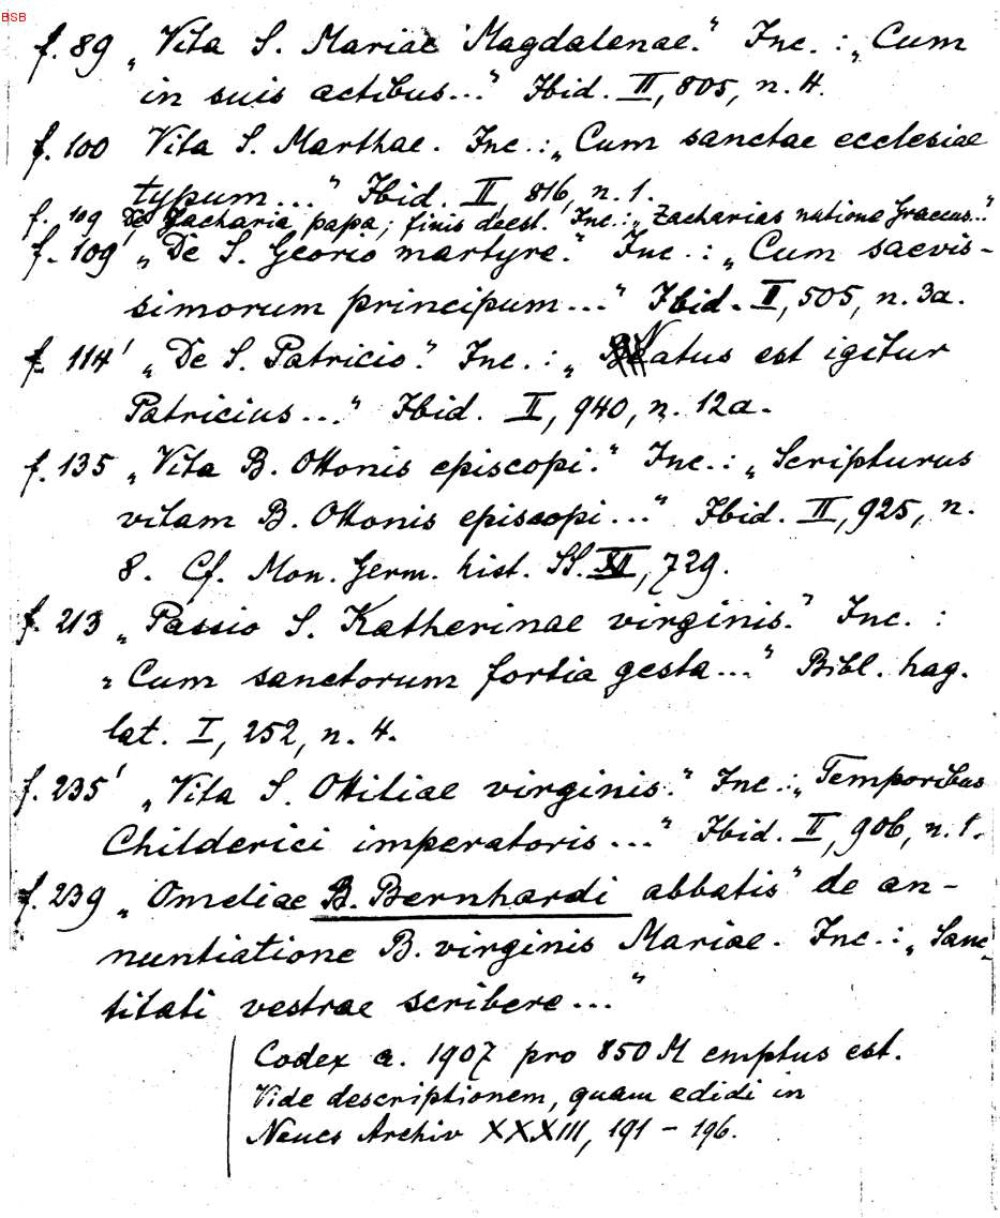 BSB
f. 89 „Vita S. Mariae Magdalenae.“ Inc.: „Cum
in suis actibus...“ Ibid. II, 805, n. 4.
f. 100 Vita S. Marthae. Inc.: „Cum sanctae ecclesiae
typum...“ Ibid. II, 816, n. 1.
f. 109 De Zacharia papa; finis deest. Inc.: „Zacharias natione Graecus...“
f. 109' „De S. Georio martyre.“ Inc.: „Cum saevis-
simorum principum...“ Ibid. II, 505, n. 3a.
f. 114' „De S. Patricio.“ Inc.: „Natus est igitur
Patricius...“ Ibid. II, 940, n. 12a.
f. 135 „Vita B. Ottonis episcopi.“ Inc.: „Scripturus
vitam B. Ottonis episcopi...“ Ibid. II, 925, n.
8. Cf. Mon. Germ. hist. SS. XII, 729.
f. 213 „Passio S. Katherinae virginis.“ Inc. :
„Cum sanctorum fortia gesta...“ Bibl. hag.
lat. I, 252, n. 4.
f. 235' „Vita S. Ottiliae virginis.“ Inc.: „Temporibus
Childerici imperatoris...“ Ibid. II, 906, n. 1.
f. 239 „Omeliae B. Bernhardi abbatis“ de an-
nuntiatione B. virginis Mariae. Inc.: „Sanc-
titati vestrae scribere...“
Codex a. 1907 pro 850 M emptus est.
Vide descriptionem, quam edidi in
Neues Archiv XXXIII, 191 - 196.